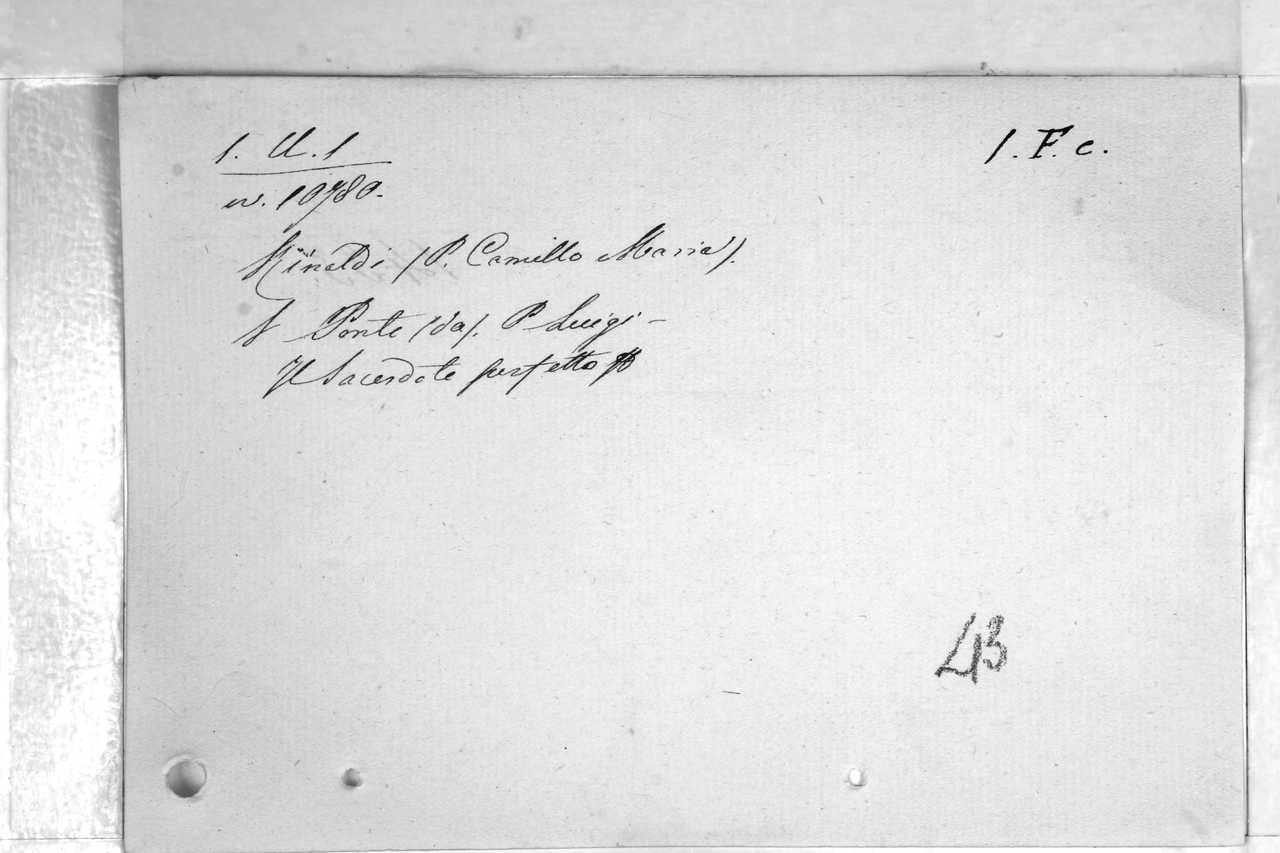 1. U. 1
1. F. c.
n. 10780.
Rinaldi (P. Camillo Maria).
V Ponte (da). P Luigi -
Il Sacerdote perfetto
43